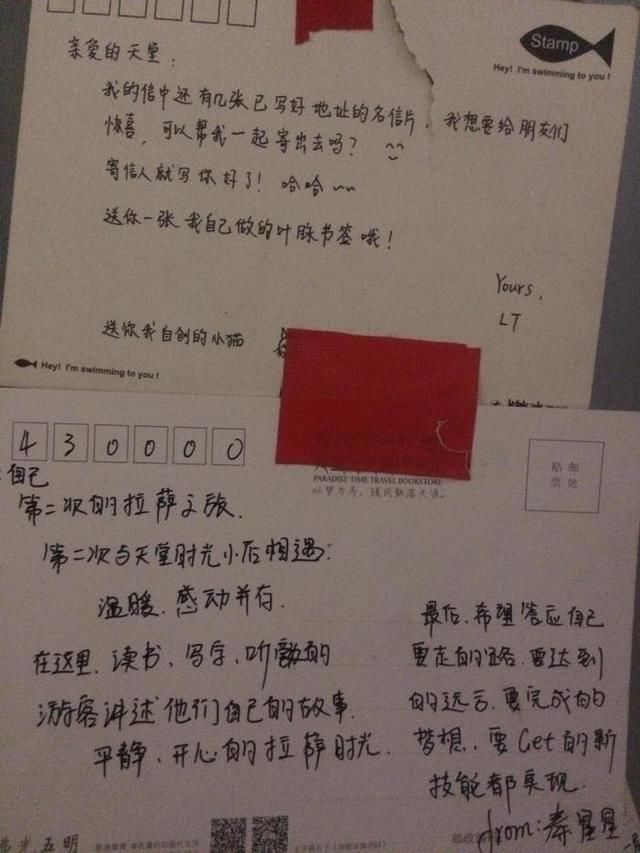 Stamp
Hey! I'm swimming to you !
亲爱的天堂：
我的信中还有几张已写好地址的名信片，我想要给朋友们
惊喜，可以帮我一起寄出去吗？
寄信人就写你好了！哈哈~~
送你一张我自己做的叶脉书签哦！
Yours,
LT
送你我自创的小猫
Hey! I'm swimming to you !
430000
自己
贴邮
票处
PARADISE TIME TRAVEL BOOKSTORE
以梦为马，
第二次的拉萨之旅.
第二次与天堂时光小店相遇:
温暖.感动并存.
在这里.读书、写字、听 的
游客讲述他们自己的故事.
平静、开心的拉萨时光.
最后.希望答应自己
要走的路.要达到
的远方.要完成的
梦想.要Get的新
技能都实现.
from:秦星星
五明